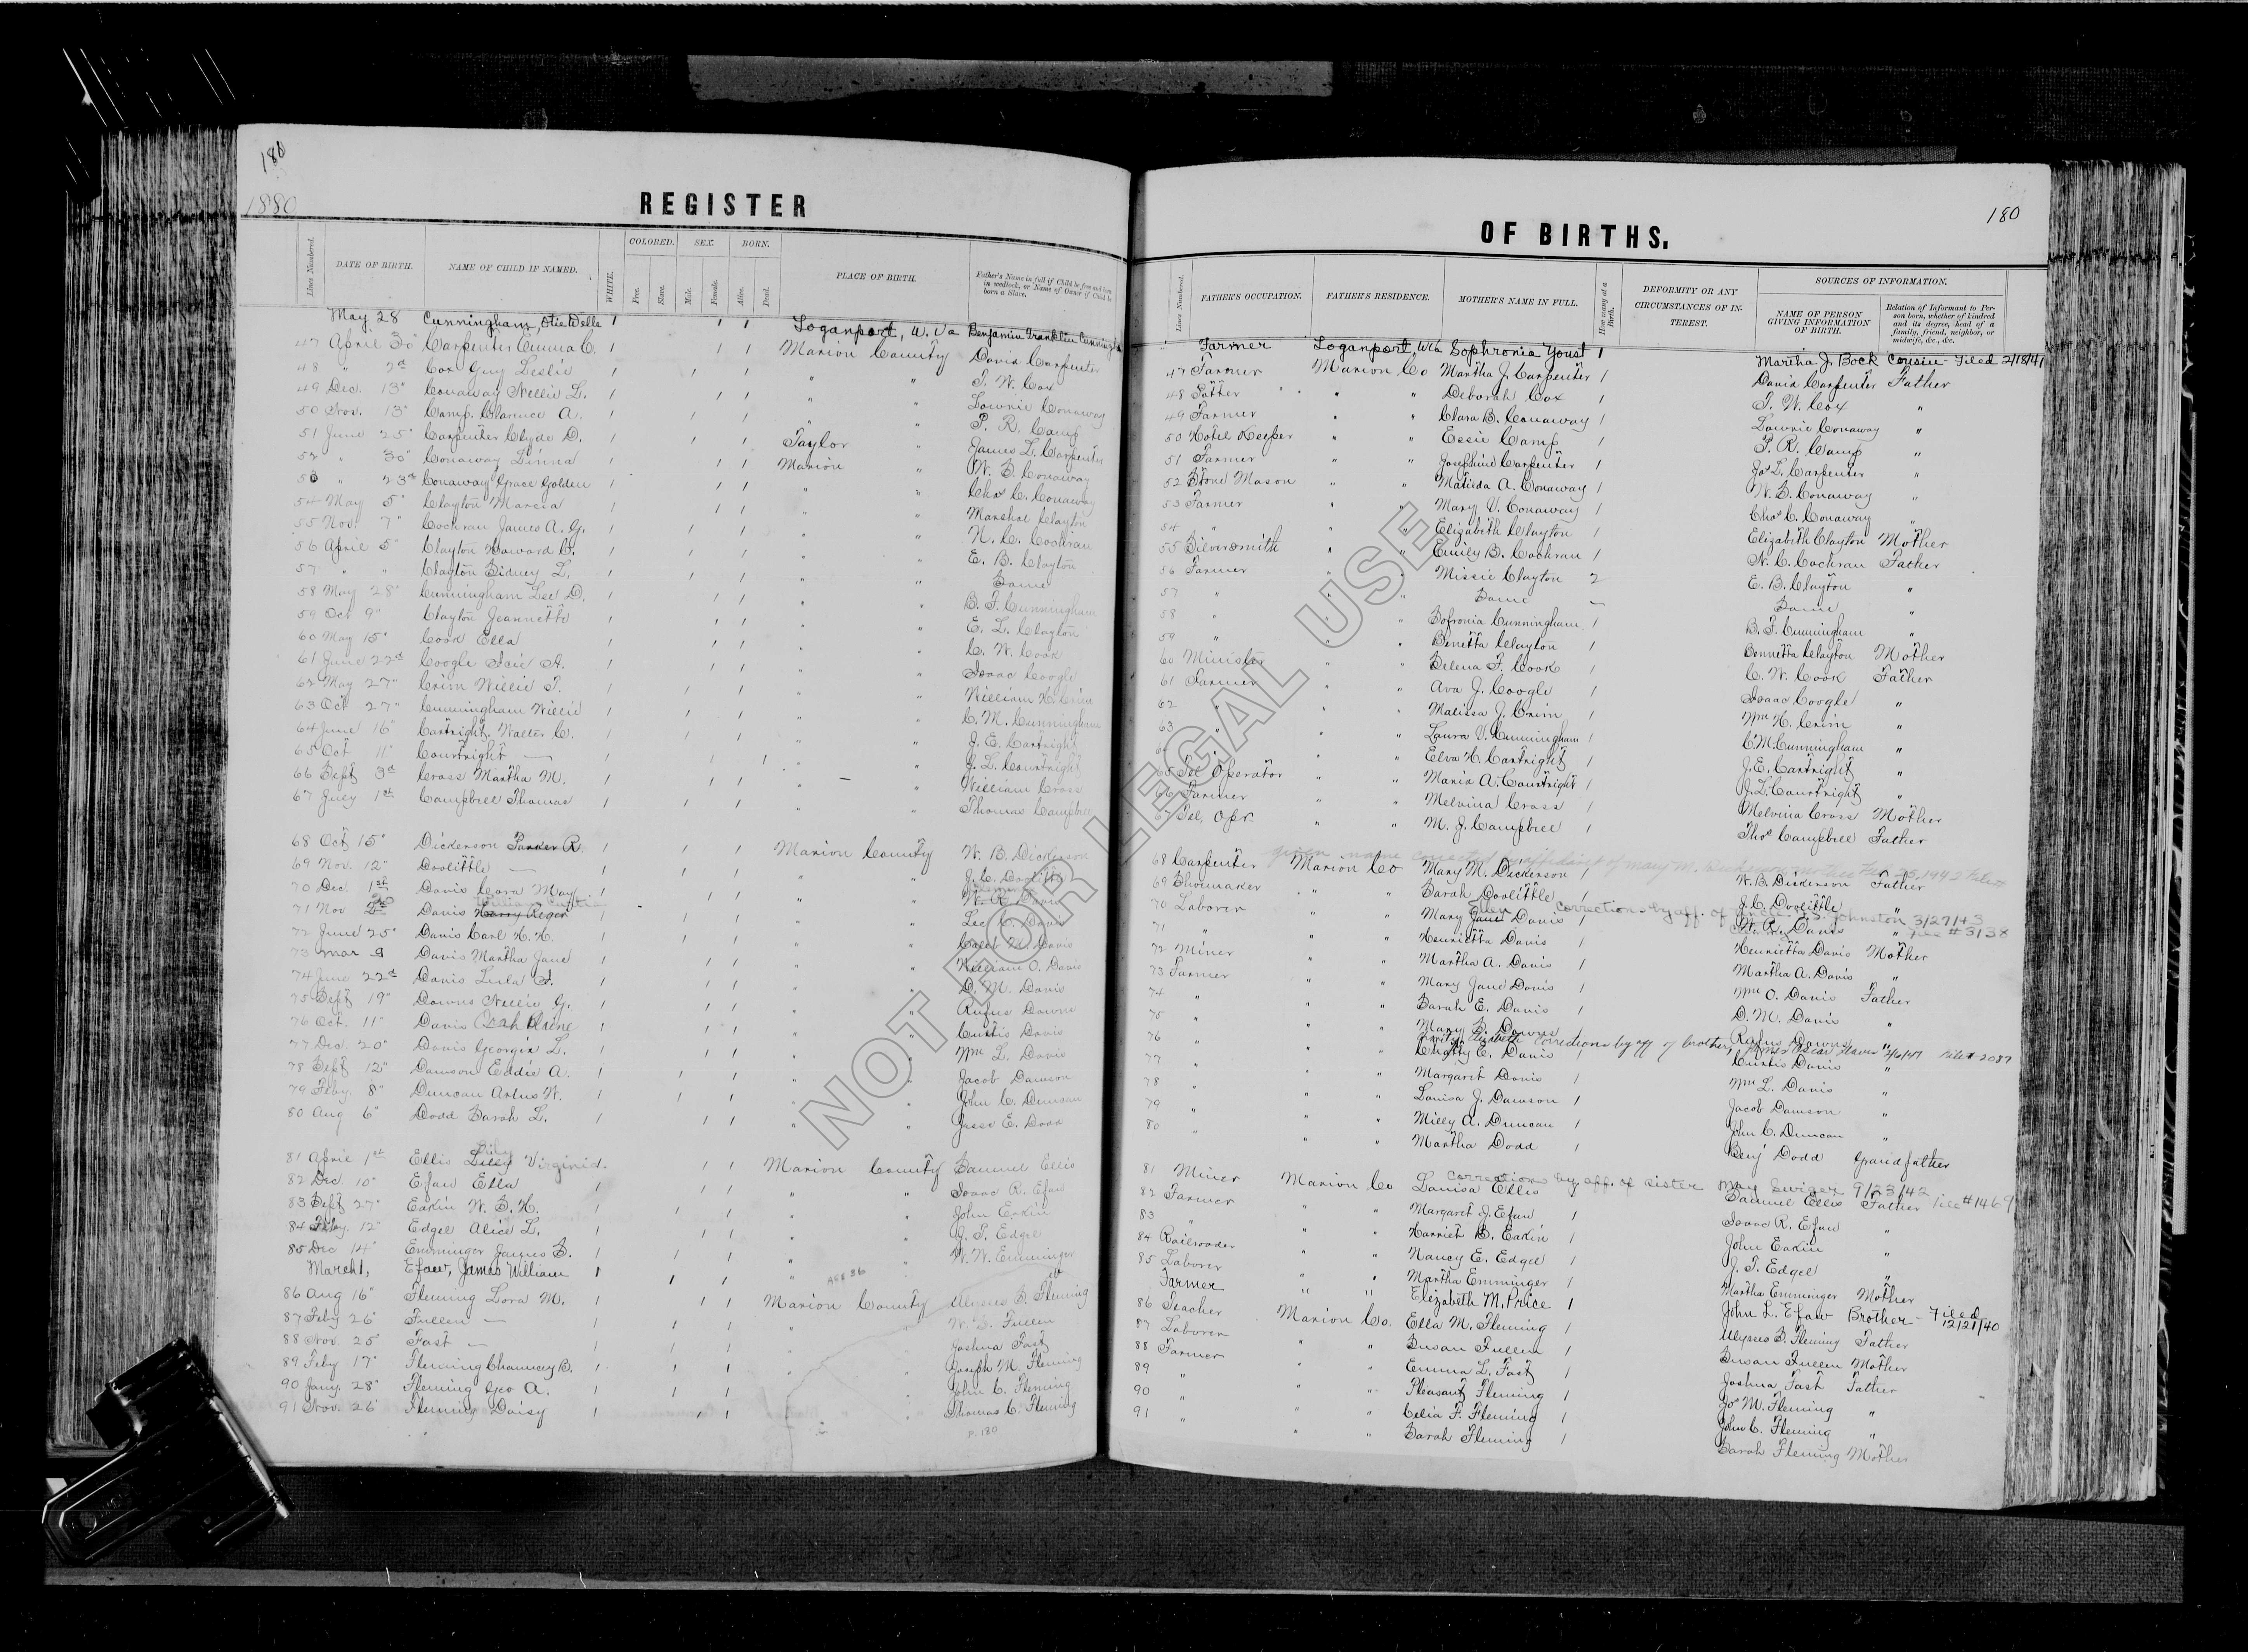 180
1880
REGISTER
Lines Numbered.
DATE OF BIRTH.
NAME OF CHILD IF NAMED.
WHITE.
COLORED.
Free.
Slave.
SEX.
Male.
Female.
BORN.
Alive.
Dead.
PLACE OF BIRTH.
Father's Name in full if Child be free and born in wedlock, or Name of Owner if Child be born a Slave.
May 28 Cunningham, Otie Delle 1 1 1 Loganport, W. Va Benjamin Franklin Cunningham
47 April 30" Carpenter Emma C. 1 1 1 Marion County David Carpenter
48 " 2d Cox Guy Leslie 1 1 1 " " T. W. Cox
49 Dec. 13" Conaway Nellie L. 1 1 1 " " Lowrie Conaway
50 Nov. 13" Camp Clarence A. 1 1 1 " " P. R. Camp
51 June 25" Carpenter Clyde D. 1 1 1 Taylor " James L. Carpenter
52 " 30" Conaway Linna 1 1 1 Marion " W. B. Conaway
53 " 23d Conaway Grace Golden 1 1 1 " " Chas C. Conaway
54 May 5" Clayton Marcia 1 1 1 " " Marshal Clayton
55 Nov. 7" Cochran James A. G. 1 1 1 " " N. C. Cochran
56 April 5" Clayton Howard C. 1 1 1 " " E. B. Clayton
57 " " Clayton Sidney L. 1 1 1 " " Same
58 May 28" Cunningham Lee D. 1 1 1 " " B. F. Cunningham
59 Oct 9" Clayton Jeannette 1 1 1 " " E. L. Clayton
60 May 15" Cook Ella 1 1 1 " " C. W. Cook
61 June 22d Coogle A. 1 1 1 " " Isaac Coogle
62 May 27" Crim Willie T. 1 1 1 " " William H. Crim
63 Oct 27" Cunningham Willie 1 1 1 " " C. M. Cunningham
64 June 16" Cartright Walter C. 1 1 1 " " J. E. Cartright
65 Oct 11" Courtright — 1 1 1 " " J. L. Courtright
66 Sept 3d Cross Martha M. 1 1 1 " " William Cross
67 July 1st Campbell Thomas 1 1 1 " " Thomas Campbell
68 Oct 15" Dickerson Parker R. 1 1 1 Marion County W. B. Dickerson
69 Nov. 12" Doolittle — 1 1 1 " " J. C. Doolittle
70 Dec. 1st Davis Cora May 1 1 1 " " W. R. Davis
71 Nov Davis Harry Reger 1 1 1 " " Lee C. Davis
72 June 25" Davis Carl H. H. 1 1 1 " " Caleb Davis
73 Mar 9 Davis Martha Jane 1 1 1 " " William O. Davis
74 June 22d Davis Lula A. 1 1 1 " " D. M. Davis
75 Sept 19" Downs Nellie G. 1 1 1 " " Rufus Downs
76 Oct. 11" Davis 1 1 1 " " Curtis Davis
77 Dec. 20" Davis Georgia L. 1 1 1 " " Wm L. Davis
78 Sept 12" Dawson Eddie A. 1 1 1 " " Jacob Dawson
79 Feby. 8" Duncan Artus W. 1 1 1 " " John C. Duncan
80 Aug 6" Dodd Sarah L. 1 1 1 " " Jasse E. Dodd
81 April 1st Ellis Lilly Virginia 1 1 Marion County Samuel Ellis
82 Dec. 10" Efaw Ella 1 1 1 " " Isaac R. Efaw
83 Sept 27" Eakin W. S. H. 1 1 1 " " John Eakin
84 Feby. 12" Edgel Alice L. 1 1 1 " " J. T. Edgel
85 Dec 14" Emminger James S. 1 1 1 " " W. W. Emminger
March 1, Efaw, James William 1 1 1 "
86 Aug 16" Fleming Lora M. 1 1 1 Marion County Ulysses S. Fleming
87 Feby 26" Fullen — 1 1 1 " " W. S. Fullen
88 Nov. 25" Fast — 1 1 1 " " Joshua Fast
89 Feby 17" Fleming Chauncey B. 1 1 1 " " Joseph M. Fleming
90 Jany. 28" Fleming Geo A. 1 1 1 " " John C. Fleming
91 Nov. 26" Fleming Daisy 1 1 1 " " Thomas C. Fleming
P. 180
180
OF BIRTHS.
Lines Numbered.
FATHER'S OCCUPATION.
FATHER'S RESIDENCE.
MOTHER'S NAME IN FULL.
How many at a Birth.
DEFORMITY OR ANY CIRCUMSTANCES OF INTEREST.
SOURCES OF INFORMATION.
NAME OF PERSON GIVING INFORMATION OF BIRTH.
Relation of Informant to Person born, whether of kindred and its degree, head of a family, friend, neighbor, or midwife, &c., &c.
Farmer Loganport, WVa Sophronia Youst 1 Martha J. Bock Cousin - Filed 2/18/41
47 Farmer Marion Co Martha J. Carpenter 1 David Carpenter Father
48 " " Deborah Cox 1 T. W. Cox "
49 Farmer " " Clara B. Conaway 1 Lowrie Conaway "
50 Hotel Keeper " " Essie Camp 1 P. R. Camp "
51 Farmer " " Josephine Carpenter 1 Jas L. Carpenter "
52 Stone Mason " " Matilda A. Conaway 1 W. B. Conaway "
53 Farmer " " Mary V. Conaway 1 Chas C. Conaway "
54 " " " Elizabeth Clayton 1 Elizabeth Clayton Mother
55 Silversmith " " Emily B. Cochran 1 N. C. Cochran Father
56 Farmer " " Missie Clayton 2 E. B. Clayton "
57 " " " Same — Same "
58 " " " Sofronia Cunningham 1 B. F. Cunningham "
59 " " " Benetta Clayton 1 Bennetta Clayton Mother
60 Minister " " Selena F. Cook 1 C. W. Cook Father
61 Farmer " " Ava J. Coogle 1 Isaac Coogle "
62 " " " Malissa J. Crim 1 Wm H. Crim "
63 " " " Laura V. Cunningham 1 C. M. Cunningham "
64 " " " Elva H. Cartright 1 J. E. Cartright "
65 Tel Operator " " Maria A. Courtright 1 J. L. Courtright "
66 Farmer " " Melvina Cross 1 Melvina Cross Mother
67 Tel, Opr. " " M. J. Campbell 1 Thos Campbell Father
given name corrected by affidavit of Mary M.
68 Carpenter Marion Co Mary M. Dickerson 1 W. B. Dickerson Father
69 Shoemaker " " Sarah Doolittle 1 J. C. Doolittle "
Ellen correction - by aff. of Johnston 3/27/43
70 Laborer " " Mary Jane Davis 1 W. R. Davis " File #3138
71 " " " Henrietta Davis 1 Henrietta Davis Mother
72 Miner " " Martha A. Davis 1 Martha A. Davis "
73 Farmer " " Mary Jane Davis 1 Wm O. Davis Father
74 " " " Sarah E. Davis 1 D. M. Davis "
75 " " " Mary S. Downs Rufus Downs "
Elizabeth corrections by aff of brother, File# 2087
76 " " " E. Davis 1 Curtis Davis "
77 " " " Margaret Davis 1 Wm L. Davis "
78 " " " Louisa J. Dawson 1 Jacob Dawson "
79 " " " Milly A. Duncan 1 John C. Duncan "
80 " " " Martha Dodd 1 Benj Dodd Grandfather
correction by aff. of sister May Swiger 9/23/42
81 Miner Marion Co Louisa Ellis Samuel Ellis Father File #1469
82 Farmer " " Margaret J. Efaw 1 Isaac R. Efaw "
83 " " " Harriet B. Eakin 1 John Eakin "
84 Railroader " " Nancy E. Edgel 1 J. T. Edgel "
85 Laborer " " Martha Emminger 1 Martha Emminger Mother
Farmer " " Elizabeth M. Price 1 John L. Efaw Brother - Filed 12/21/40
86 Teacher Marion Co. Ella M. Fleming 1 Ulysses S. Fleming Father
87 Laborer " " Susan Fullen 1 Susan Fullen Mother
88 Farmer " " Emma L. Fast 1 Joshua Fast Father
89 " " " Pleasant Fleming 1 Jos M. Fleming "
90 " " " Celia F. Fleming 1 John C. Fleming "
91 " " " Sarah Fleming 1 Sarah Fleming Mother
NOT FOR LEGAL USE